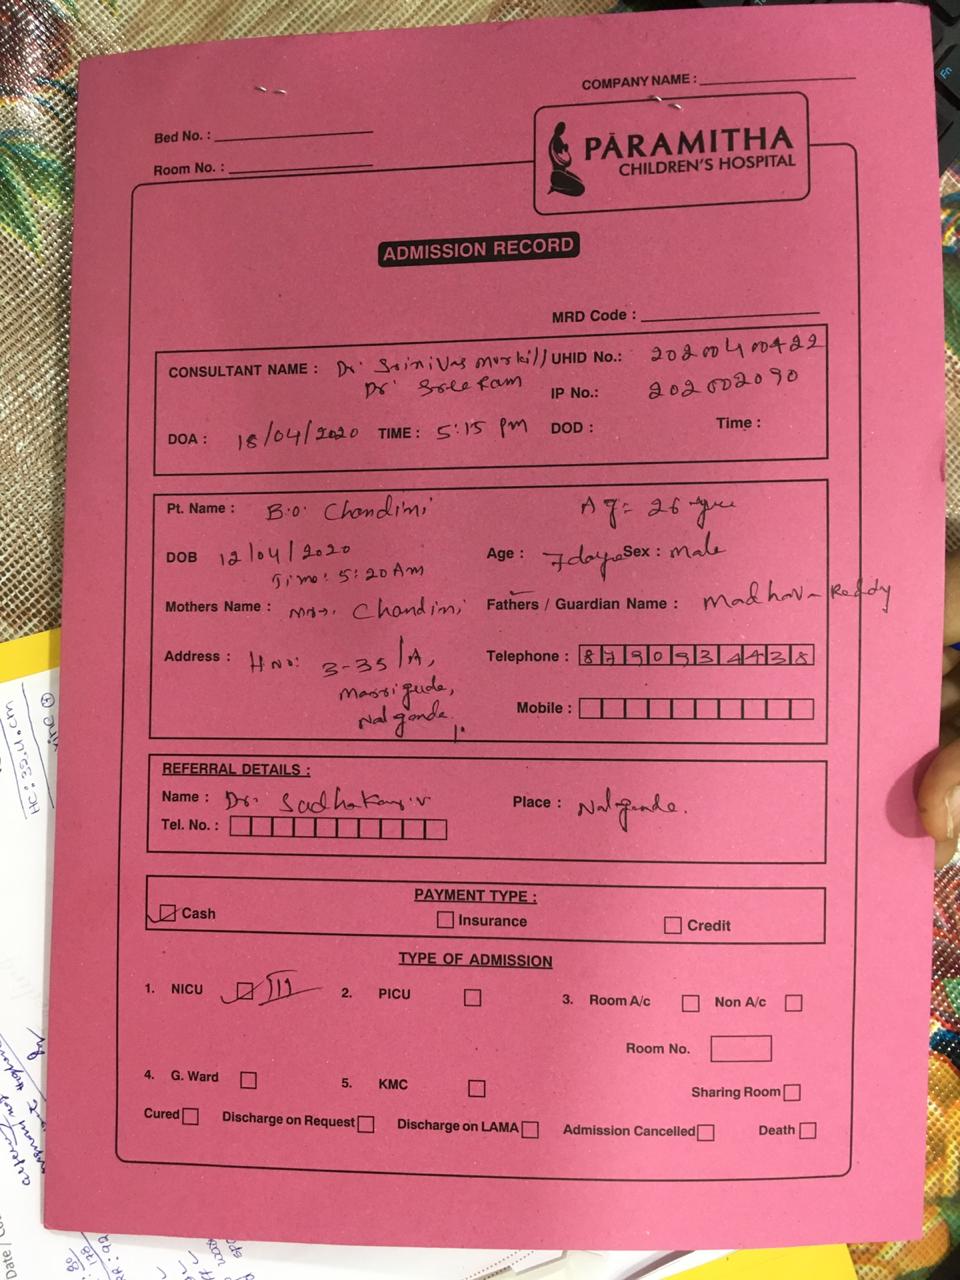 COMPANY NAME :
Bed No. :
Room No. :
PĀRAMITHA
CHILDREN'S HOSPITAL
ADMISSION RECORD
MRD Code :
CONSULTANT NAME : Dr. Srinivas UHID No.: 20200400422
Dr. Sree Ram IP No.: 202002090
DOA : 18/04/2020 TIME : 5:15 pm DOD : Time :
Pt. Name : B.O. Chandini Ag= 26
DOB 12/04/2020 Age : 7days Sex : male
Time: 5:20 Am
Mothers Name : Mrs. Chandini Fathers / Guardian Name : Madhava Reddy
Address : H No: 3-35/A, Telephone : 8790934438
Marriguda,
Nalgonda. Mobile :
REFERRAL DETAILS :
Name : Dr. Place : Nalgonda.
Tel. No. :
PAYMENT TYPE :
Cash Insurance Credit
TYPE OF ADMISSION
1. NICU III 2. PICU 3. Room A/c Non A/c
Room No.
4. G. Ward 5. KMC Sharing Room
Cured Discharge on Request Discharge on LAMA Admission Cancelled Death
HC: 35.4 cm
Date /
Fn